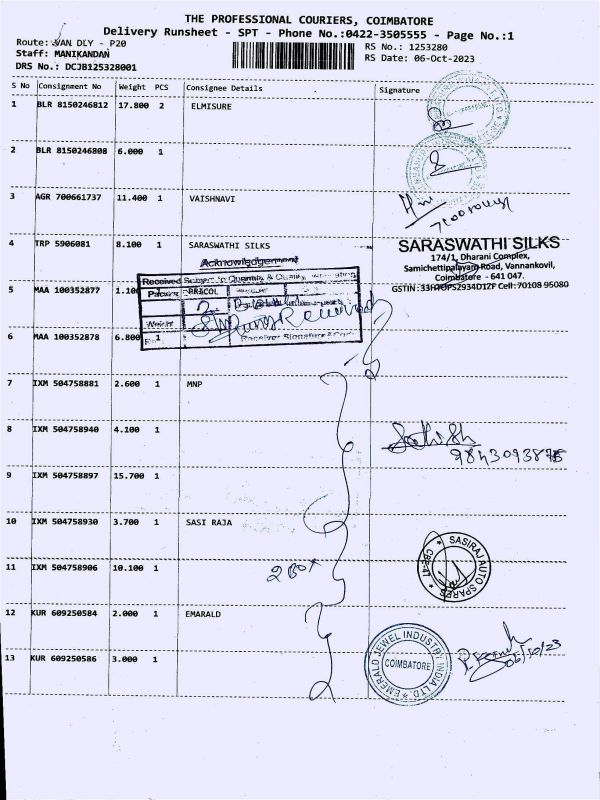 THE PROFESSIONAL COURIERS, COIMBATORE
Delivery Runsheet - SPT - Phone No.:0422-3505555 - Page No.:1
Route: VAN DLY - P20
RS No.: 1253280
Staff: MANIKANDAN
RS Date: 06-Oct-2023
DRS No.: DCJB125328001
S No Consignment No Weight PCS Consignee Details Signature
1 BLR 8150246812 17.800 2 ELMISURE
2 BLR 8150246808 6.000 1
3 AGR 700661737 11.400 1 VAISHNAVI
4 TRP 5906081 8.100 1 SARASWATHI SILKS
SARASWATHI SILKS
174/1, Dharani Complex,
Samichettipalayam Road, Vannankovil,
Coimbatore - 641 047.
Cell: 70108 95080
Acknowledgement
Received Subject to Quantity & Quality
5 MAA 100352877 1.100
Weight
Received
Receiver Signature &
6 MAA 100352878 6.800 1
7 IXM 504758881 2.600 1 MNP
8 IXM 504758940 4.100 1
Sathish
9843093875
9 IXM 504758897 15.700 1
10 IXM 504758930 3.700 1 SASI RAJA
SASIRAJ AUTO SPARES
CBE-47
11 IXM 504758906 10.100 1
2 Box
12 KUR 609250584 2.000 1 EMARALD
EMERALD JEWEL INDUSTRY INDIA LTD
COIMBATORE
06/10/23
13 KUR 609250586 3.000 1